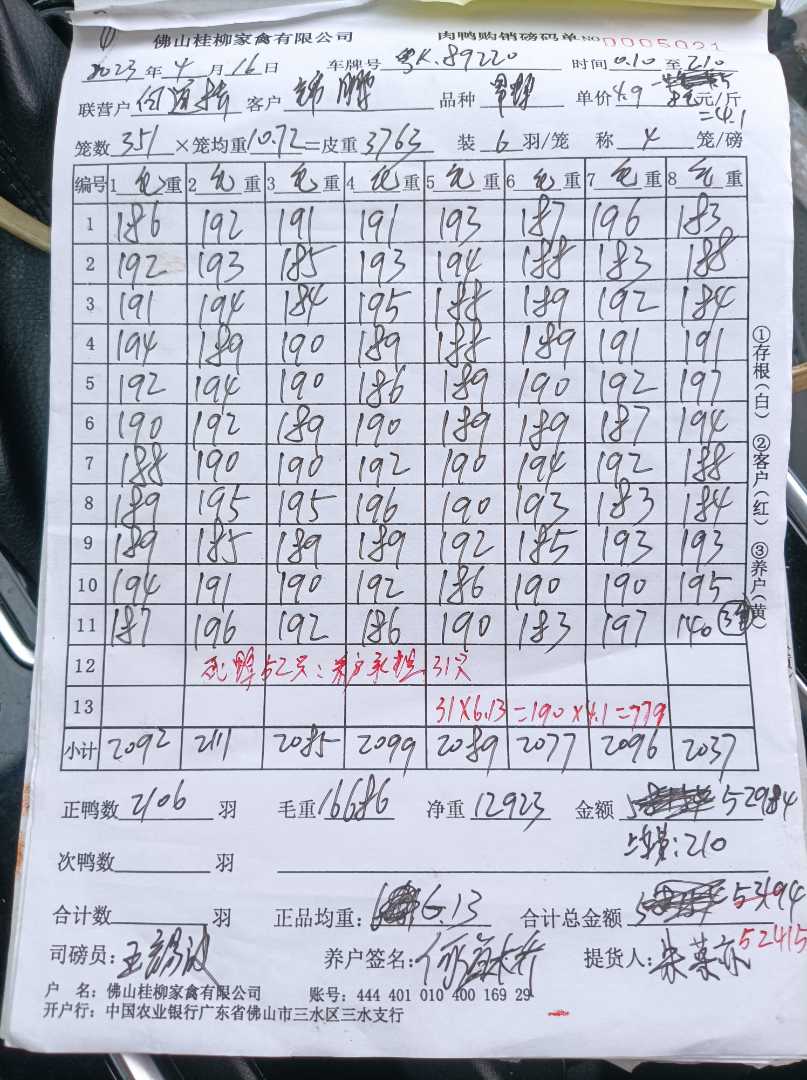 佛山桂柳家禽有限公司 肉鸭购销磅码单 NO 0005021
2023年4月16日 车牌号 粤K.89220 时间 0.10 至 2.10
联营户 客户 品种 单价 4.9 元/斤
=4.1
笼数 351 ×笼均重 10.72 =皮重 3763 装 6 羽/笼 称 4 笼/磅
编号 1 毛重 2 毛重 3 毛重 4 毛重 5 毛重 6 毛重 7 毛重 8 毛重
1 186 192 191 191 193 187 196 183
2 192 193 185 193 194 188 183 188
3 191 194 184 195 188 189 192 184
4 194 189 190 189 188 189 191 191
5 192 194 190 186 189 190 192 197
6 190 192 189 190 189 189 187 194
7 188 190 190 192 190 194 192 188
8 189 195 195 196 190 193 183 184
9 189 185 189 189 192 185 193 193
10 194 191 190 192 186 190 190 195
11 187 196 192 186 190 183 197 140
12 死鸭52只:养户承担31只
13 31×6.13=190×4.1=779
小计 2092 2111 2085 2099 2089 2077 2096 2037
正鸭数 2106 羽 毛重 16686 净重 12923 金额 52984
:210
次鸭数 羽
合计数 羽 正品均重: 6.13 合计总金额 53194
52415
司磅员: 养户签名: 提货人:
户 名:佛山桂柳家禽有限公司 账号:444 401 010 400 169 29
开户行:中国农业银行广东省佛山市三水区三水支行
①存根(白) ②客户(红) ③养户(黄)